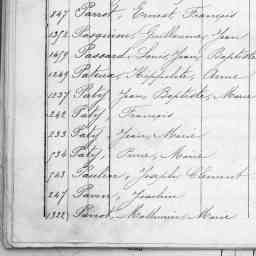 847 Parrot, Ernest François
1372 Pasquiou, Guillaume, Jean
1479 Passard, Louis, Jean, Baptiste
1249 Paterne, Hippolite, Aimé
1237 Paty, Jean, Baptiste, Marie
242 Paty, François
233 Paty, Jean, Marie
734 Paty, Pierre, Marie
743 Paulin, Joseph Clément
247 Pavou, Joachim
1322 Perrot, Mathurin, Marie